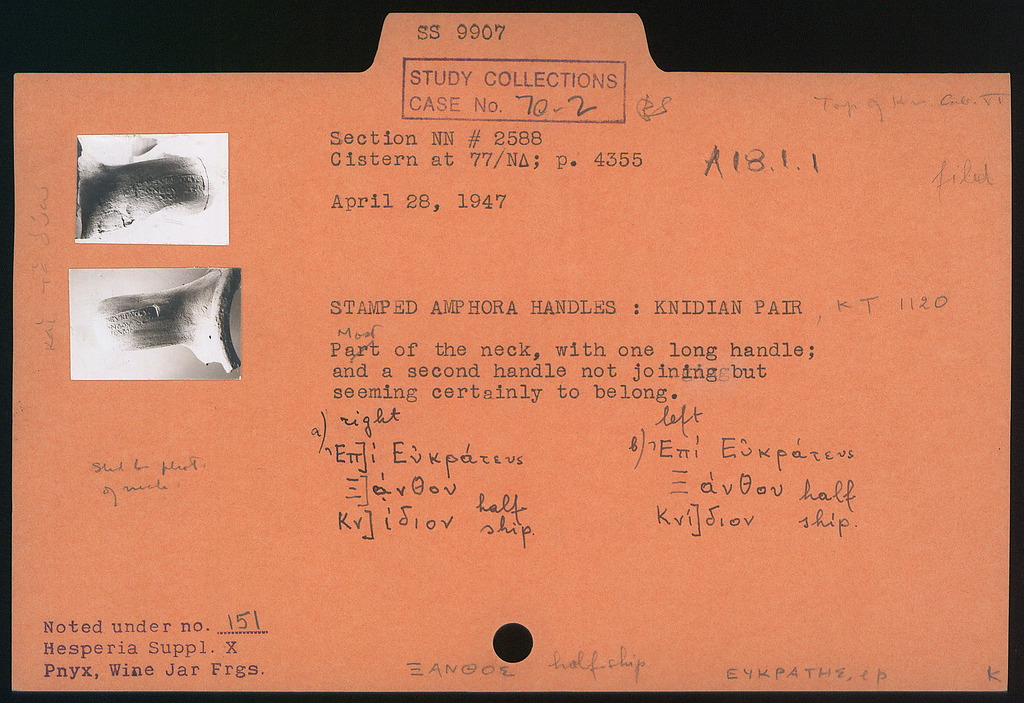 SS 9907
STUDY COLLECTIONS
CASE No. 70-2
Top of Kn. Cab. VI
Section NN # 2588
Cistern at 77/ΝΔ; p. 4355
A18.1.1
filed
April 28, 1947
STAMPED AMPHORA HANDLES : KNIDIAN PAIR, KT 1120
Most
Part of the neck, with one long handle;
and a second handle not joining but
seeming certainly to belong.
a) right
Ἐπ]ὶ Εὐκράτευς
Ξ]άνθου
Κν]ίδιον half ship.
left
b) Ἐπὶ Εὐκράτευς
Ξάνθου half
Κνί]διον ship.
of neck.
Noted under no. 151
Hesperia Suppl. X
Pnyx, Wine Jar Frgs.
ΞΑΝΘΟΣ half ship
ΕΥΚΡΑΤΗΣ, ep
K